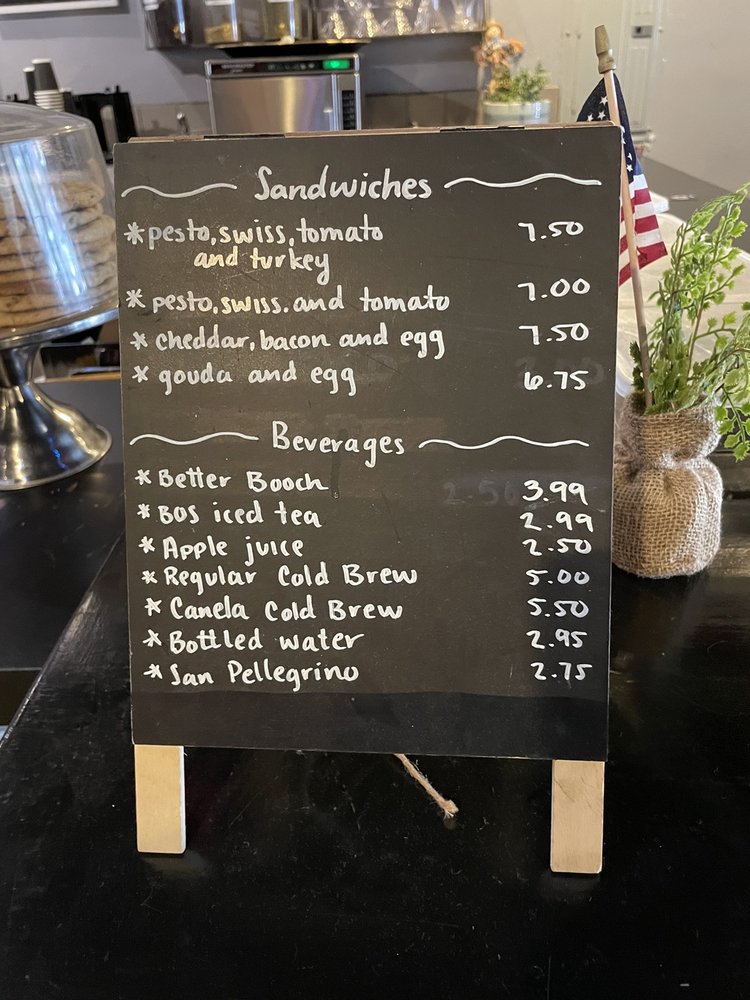 Sandwiches
* pesto, swiss, tomato 7.50
and turkey
* pesto, swiss. and tomato 7.00
* cheddar, bacon and egg 7.50
* gouda and egg 6.75
Beverages
* Better Booch 3.99
* BOS iced tea 2.99
* Apple juice 2.50
* Regular Cold Brew 5.00
* Canela Cold Brew 5.50
* Bottled water 2.95
* San Pellegrino 2.75